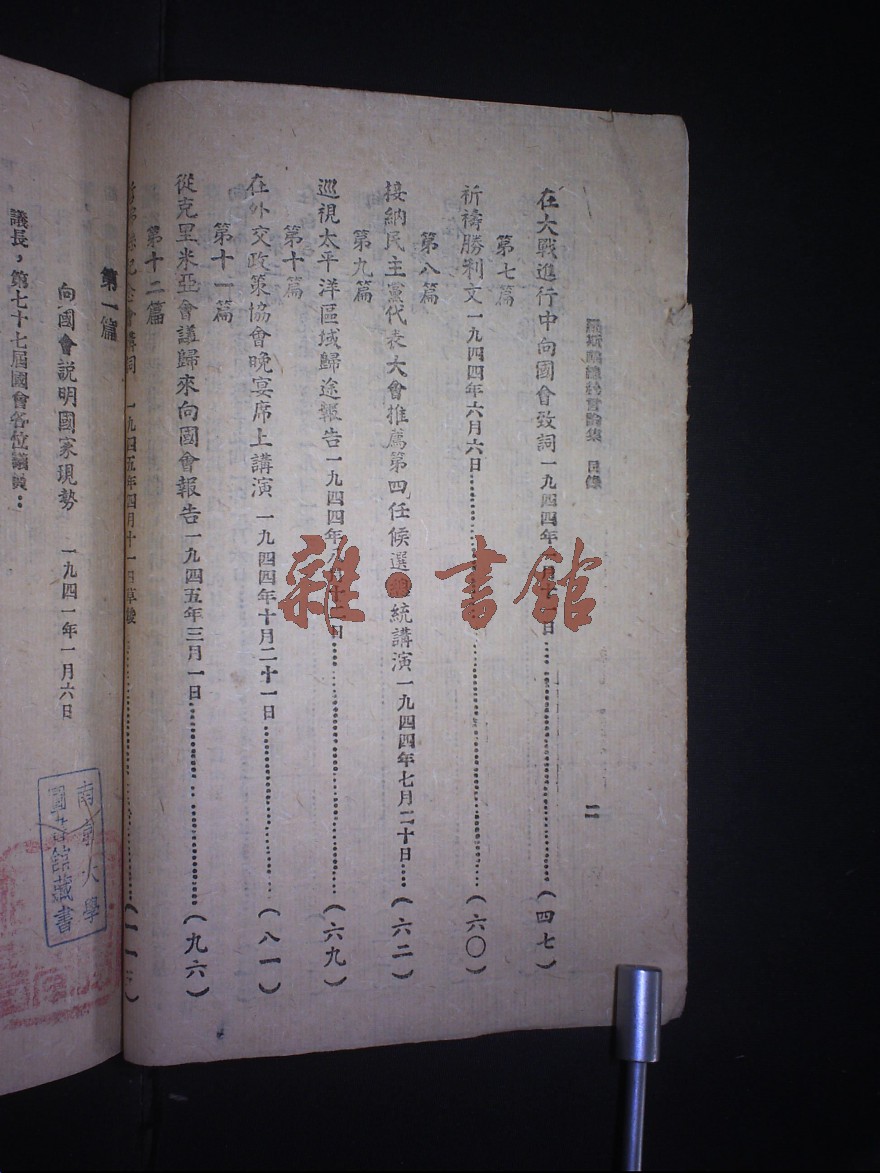 羅斯福總統言論集 目錄
二
在大戰進行中向國會致詞一九四四年 月 日(四七)
第七篇
祈禱勝利文一九四四年六月六日(六〇)
第八篇
接納民主黨代表大會推薦第四任候選總統講演一九四四年七月二十日(六二)
第九篇
巡視太平洋區域歸途報告一九四四年八月 日(六九)
第十篇
在外交政策協會晚宴席上講演 一九四四年十月二十一日(八一)
第十一篇
從克里米亞會議歸來向國會報告一九四五年三月一日(九六)
第十二篇
紀念會講詞 一九四五年四月十一日草
第一篇
向國會説明國家現勢 一九四一年一月六日
議長，第七十七屆國會各位議員：
南京大學
圖書館藏書
雜·書館